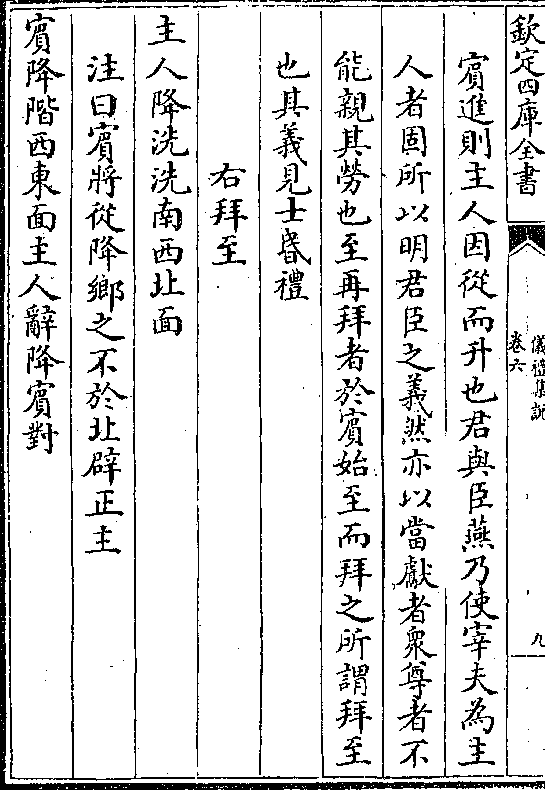 欽定四庫全書
儀禮集說
卷六
九
賓進則主人因從而升也君與臣燕乃使宰夫為主
人者固所以明君臣之義然亦以當獻者衆尊者不
能親其勞也至再拜者於賓始至而拜之所謂拜至
也其義見士昏禮
右拜至
主人降洗洗南西北面
注曰賓將從降鄉之不於北辟正主
賓降階西東面主人辭降賓對